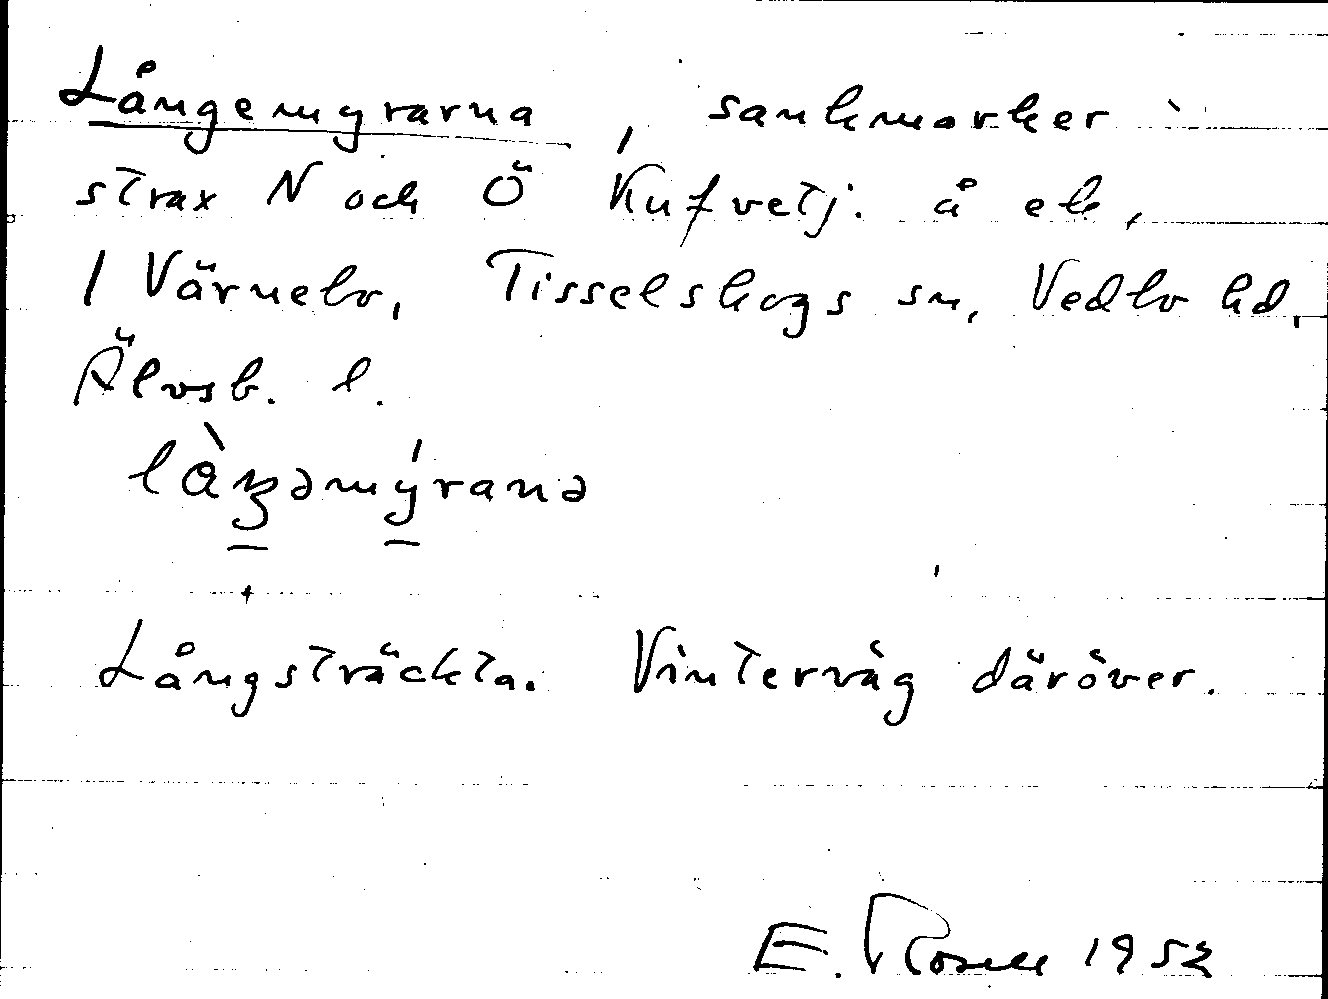 Långemyrarna, sankmarker
strax N och Ö Kufvetj. å ek,
1 Värnebo, Tisselskogs sn, Vedbo hd,
Älvsb. l.
låŋəmýranə
Långsträckta. Vinterväg däröver.
E. Rosell 1952